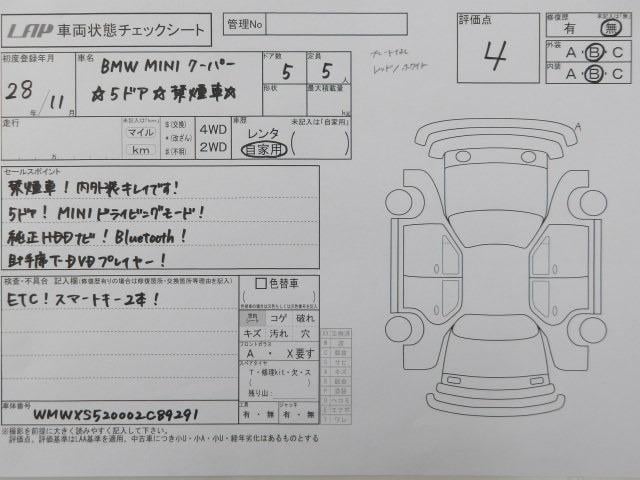 LAP 車両状態チェックシート
管理No
評価点
4
修復歴
未記入は「無」
有 無
外装
A・B・C
内装
A・B・C
初度登録年月
28年/11月
車名
BMW MINI クーパー
☆5ドア☆禁煙車☆
ドア数
5
定員
5人
形状
最大積載量
kg
プレートなし
レッド/ホワイト
走行
未記入は「km」
マイル
km
$(交換)
*(改ざん)
#(不明)
4WD
2WD
車歴
レンタ
自家用
未記入は「自家用」
A
セールスポイント
禁煙車!内外装キレイです!
5ドア!MINIドライビングモード!
純正HDDナビ!Bluetooth!
助手席下DVDプレイヤー!
検査・不具合 記入欄(修復歴有りの場合は修復箇所・交換箇所等理由を記入)
ETC!スマートキー2本!
色替車
シート
コゲ 破れ
キズ 汚れ 穴
フロントガラス
A ・ X要す
スペアタイヤ
T・修理kit・欠・ス
残り山:
工具
有・無
ジャッキ
有・無
車体番号
WMWXS520002C89291
※撮影を前提に大きく読みやすく記入して下さい。
評価点、評価基準はLAA基準を適用、中古車につき小U・小A・小U・経年劣化はあるものとする